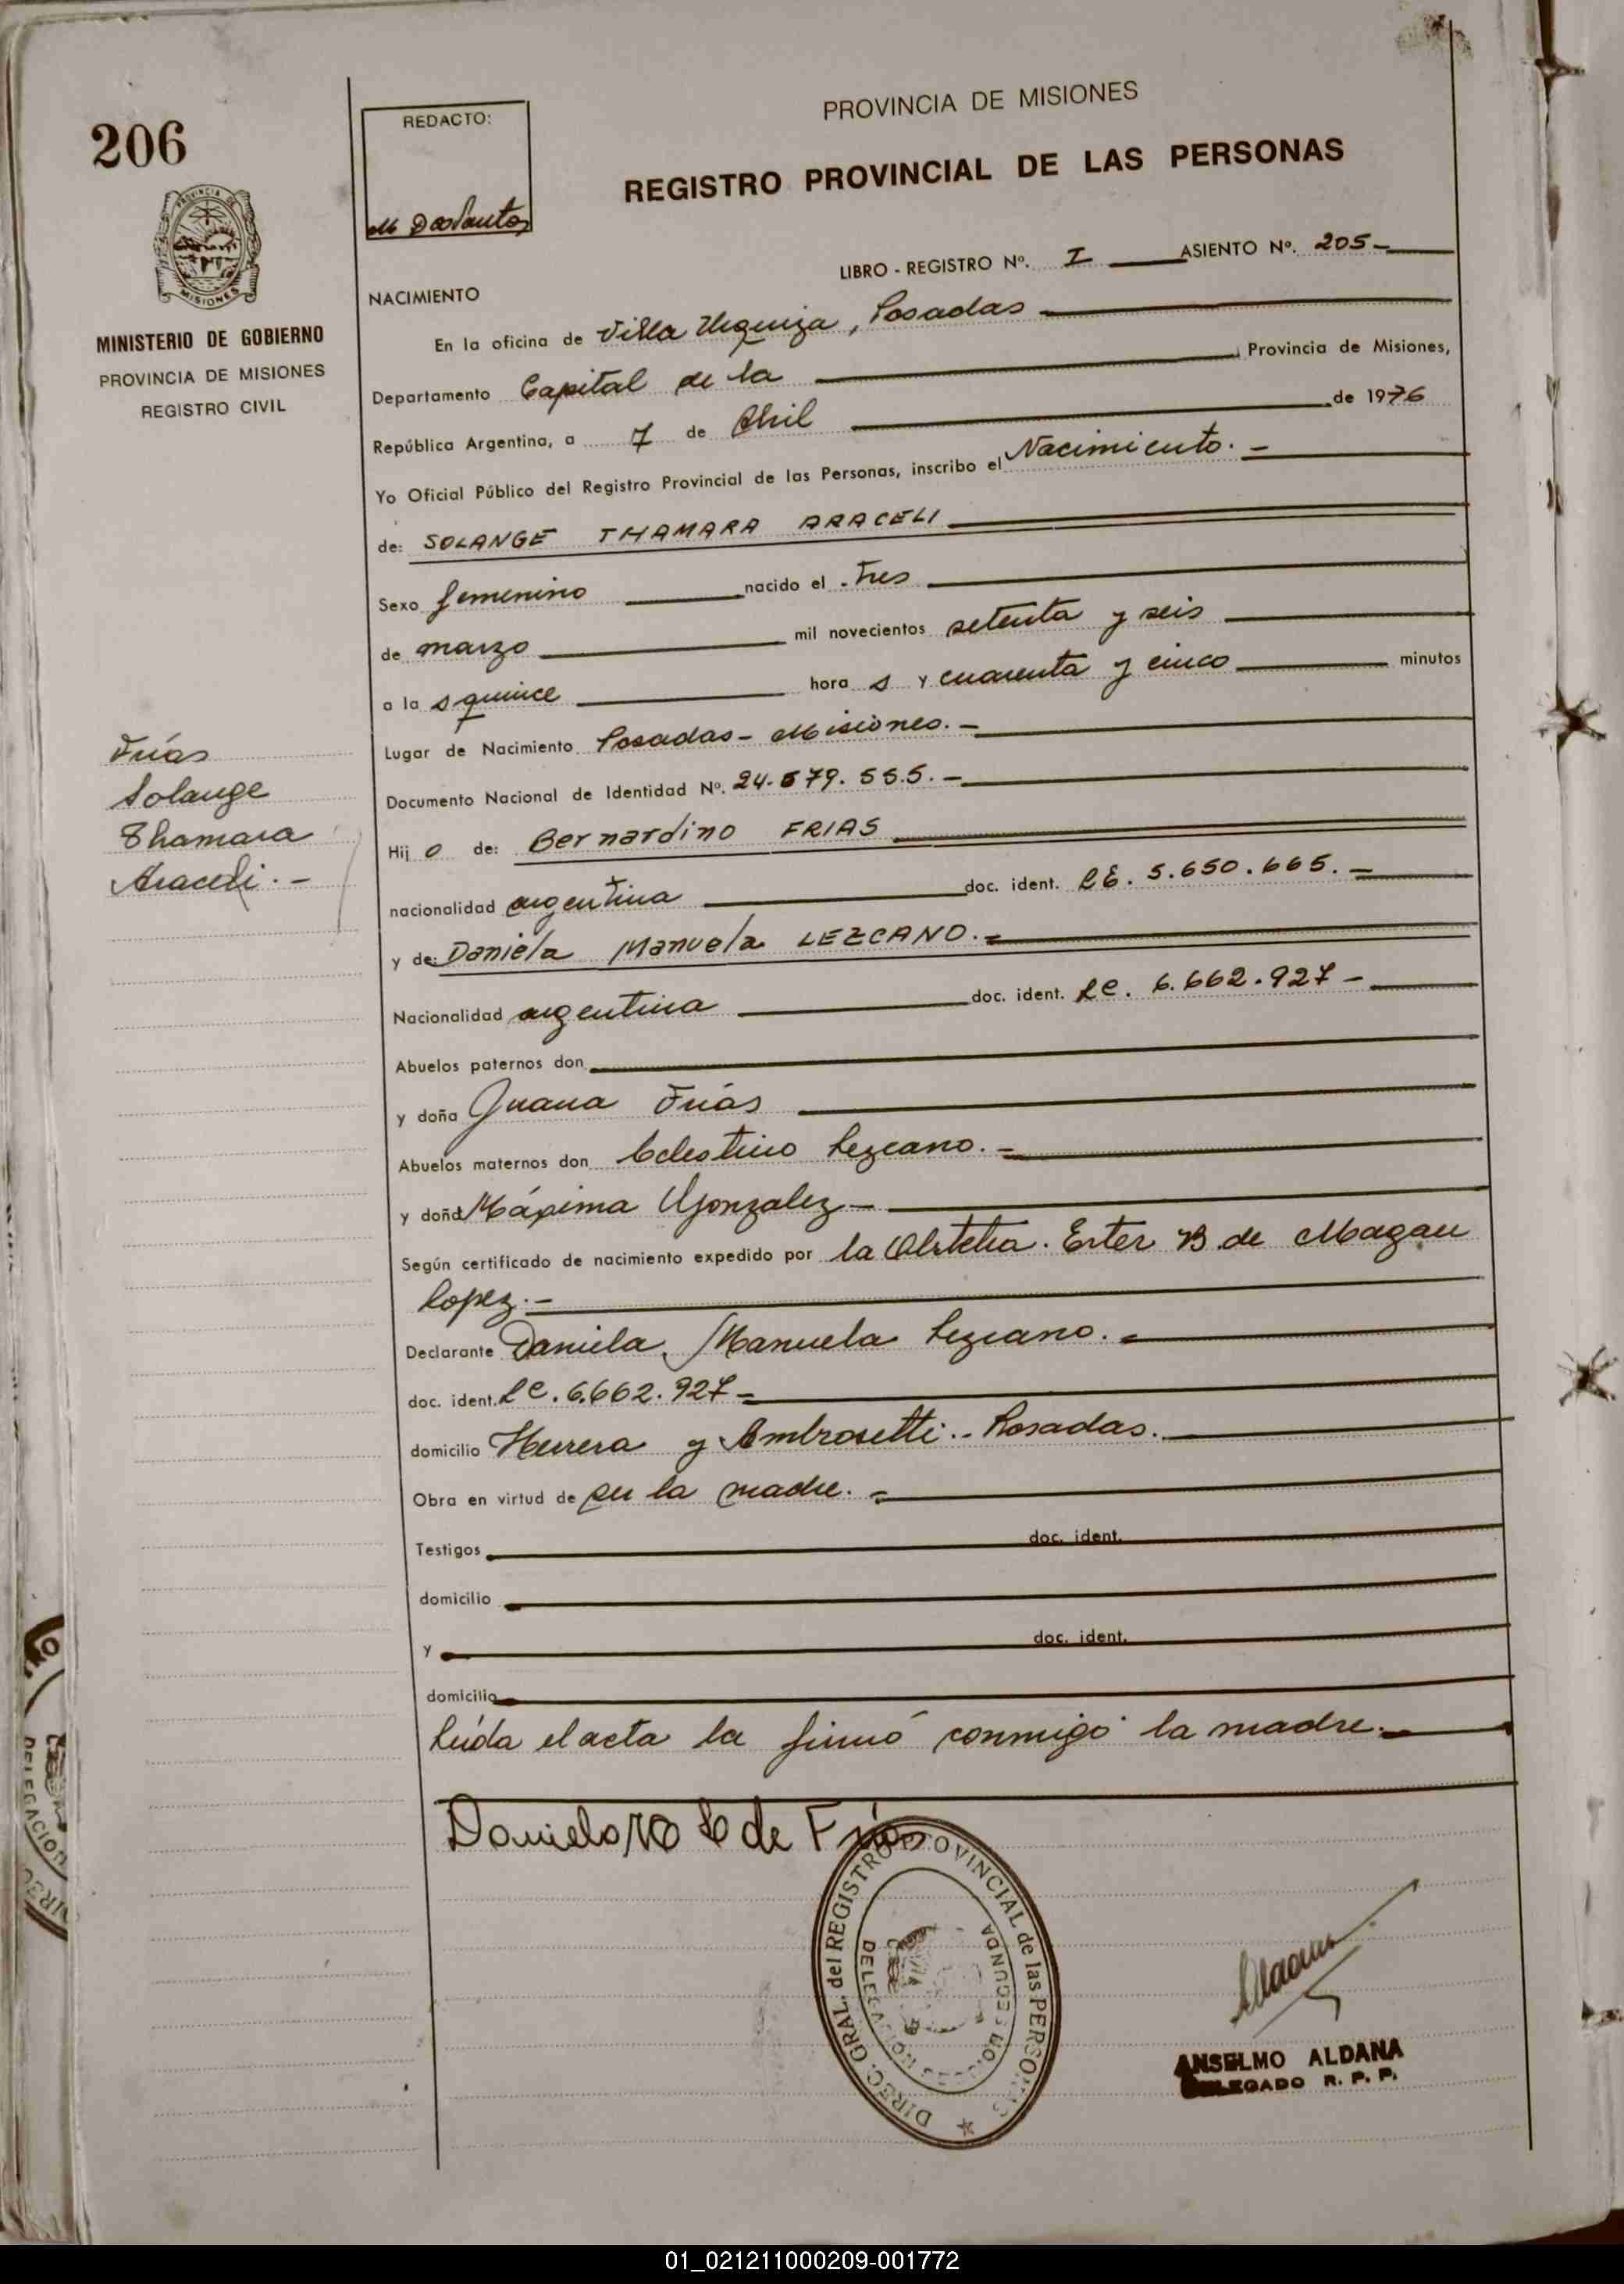 206
PROVINCIA DE
MISIONES
MINISTERIO DE GOBIERNO
PROVINCIA DE MISIONES
REGISTRO CIVIL
REDACTO:
M DosSantos
PROVINCIA DE MISIONES
REGISTRO PROVINCIAL DE LAS PERSONAS
LIBRO - REGISTRO Nº. I ASIENTO Nº. 205-
NACIMIENTO
En la oficina de Villa Urquiza, Posadas
Departamento Capital de la Provincia de Misiones,
República Argentina, a 7 de Abril de 1976
Yo Oficial Público del Registro Provincial de las Personas, inscribo el Nacimiento.-
de: SOLANGE THAMARA ARACELI
Sexo femenino nacido el Tres
de marzo mil novecientos setenta y seis
a la s quince hora s y cuarenta y cinco minutos
Lugar de Nacimiento Posadas- Misiones.-
Documento Nacional de Identidad Nº. 24.579.555.-
Hij o de: Bernardino FRIAS
nacionalidad argentina doc. ident. LE. 5.650.665.-
y de: Daniela Manuela LEZCANO.-
Nacionalidad argentina doc. ident. LC. 6.662.927-
Abuelos paternos don
y doña Juana Frías
Abuelos maternos don Celestino Lezcano.-
y doña Máxima Gonzalez-
Según certificado de nacimiento expedido por la Obstetra. Ester B de Magan
Lopez.-
Declarante Daniela Manuela Lezcano.-
doc. ident. LC. 6.662.927-
domicilio Herrera y Ambrosetti.- Posadas.
Obra en virtud de ser la madre.-
Testigos doc. ident.
domicilio
y doc. ident.
domicilio
Leída el acta la firmó conmigo la madre.-
Frías
Solange
Thamara
Araceli.-
Daniela M L de Frías
DIREC. GRAL. del REGISTRO PROVINCIAL de las PERSONAS
DELEGACION SEGUNDA MISIONES
ANSELMO ALDANA
DELEGADO R. P. P.
01_021211000209-001772